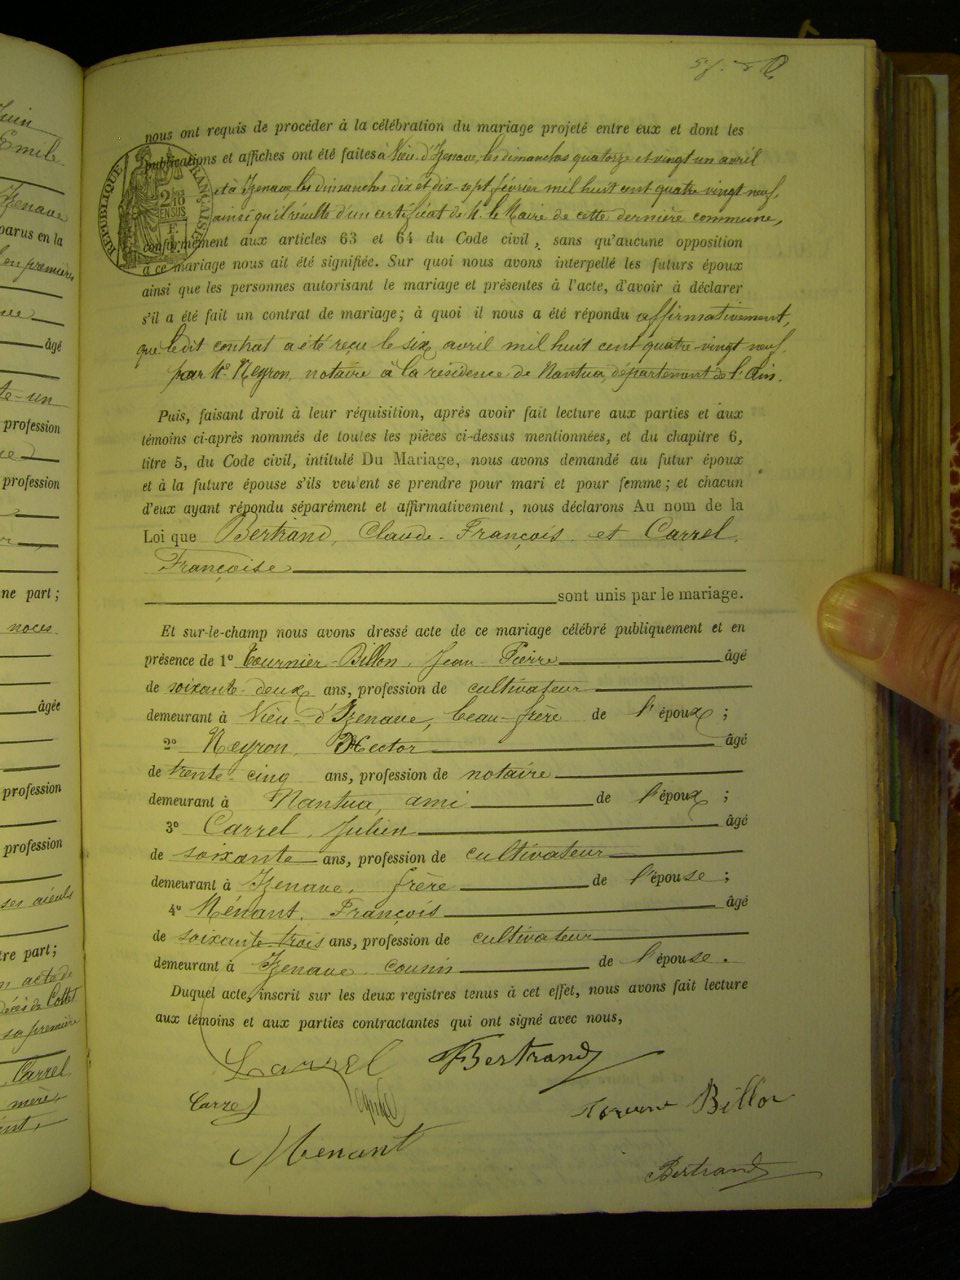 Juin
Emile
Izenave
parus en la
en premières
âgé
te-un
profession
profession
ne part ;
noces
âgée
profession
profession
ses aïeuls
tre part ;
n acte de
décès de Cottet
sa première
Carrel
mère
nous ont requis de procéder à la célébration du mariage projeté entre eux et dont les
publications et affiches ont été faites à Vieu-d'Izenave, les dimanches quatorze et vingt un avril
et à Izenave les dimanches dix et dix-sept février mil huit cent quatre-vingt neuf,
ainsi qu'il résulte d'un certificat de M. le Maire de cette dernière commune,
conformément aux articles 63 et 64 du Code civil, sans qu'aucune opposition
à ce mariage nous ait été signifiée. Sur quoi nous avons interpellé les futurs époux
ainsi que les personnes autorisant le mariage et présentes à l'acte, d'avoir à déclarer
s'il a été fait un contrat de mariage ; à quoi il nous a été répondu affirmativement,
que ledit contrat a été reçu le six avril mil huit cent quatre-vingt neuf
par Me Neyron, notaire à la résidence de Nantua, département de l'Ain.
RÉPUBLIQUE FRANÇAISE
2/10 EN SUS
Puis, faisant droit à leur réquisition, après avoir fait lecture aux parties et aux
témoins ci-après nommés de toutes les pièces ci-dessus mentionnées, et du chapitre 6,
titre 5, du Code civil, intitulé Du Mariage, nous avons demandé au futur époux
et à la future épouse s'ils veulent se prendre pour mari et pour femme ; et chacun
d'eux ayant répondu séparément et affirmativement, nous déclarons Au nom de la
Loi que Bertrand, Claude-François et Carrel,
Françoise
sont unis par le mariage.
Et sur-le-champ nous avons dressé acte de ce mariage célébré publiquement et en
présence de 1° Tournier-Billon, Jean-Pierre âgé
de soixante-deux ans, profession de cultivateur
demeurant à Vieu-d'Izenave, beau-frère de l'époux ;
2° Neyron, Hector âgé
de trente-cinq ans, profession de notaire
demeurant à Nantua, ami de l'époux ;
3° Carrel, Julien âgé
de soixante ans, profession de cultivateur
demeurant à Izenave, frère de l'épouse ;
4° Ménant, François âgé
de soixante-trois ans, profession de cultivateur
demeurant à Izenave cousin de l'épouse.
Duquel acte, inscrit sur les deux registres tenus à cet effet, nous avons fait lecture
aux témoins et aux parties contractantes qui ont signé avec nous,
Carrel Bertrand
Carrel Billon
Menant
Bertrand